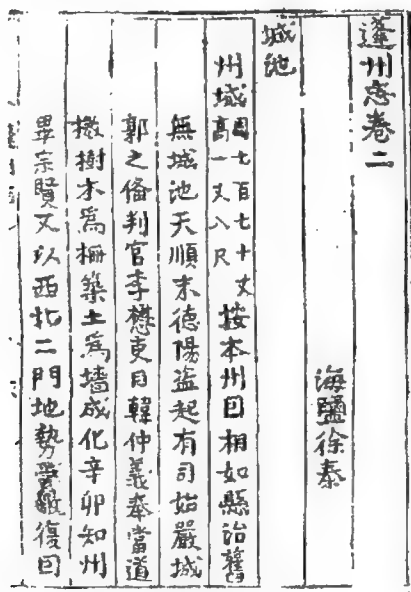 蓬州志卷二
海鹽徐泰
城池
州城周七百七十丈高一丈八尺 按本州因相如縣治舊
無城池天順末德陽盗起有司始嚴城
郭之俻判官李懋吏目韓仲義奉當道
檄樹木為柵築土為墙成化辛卯知州
畢宗賢又以西北二門地勢復因